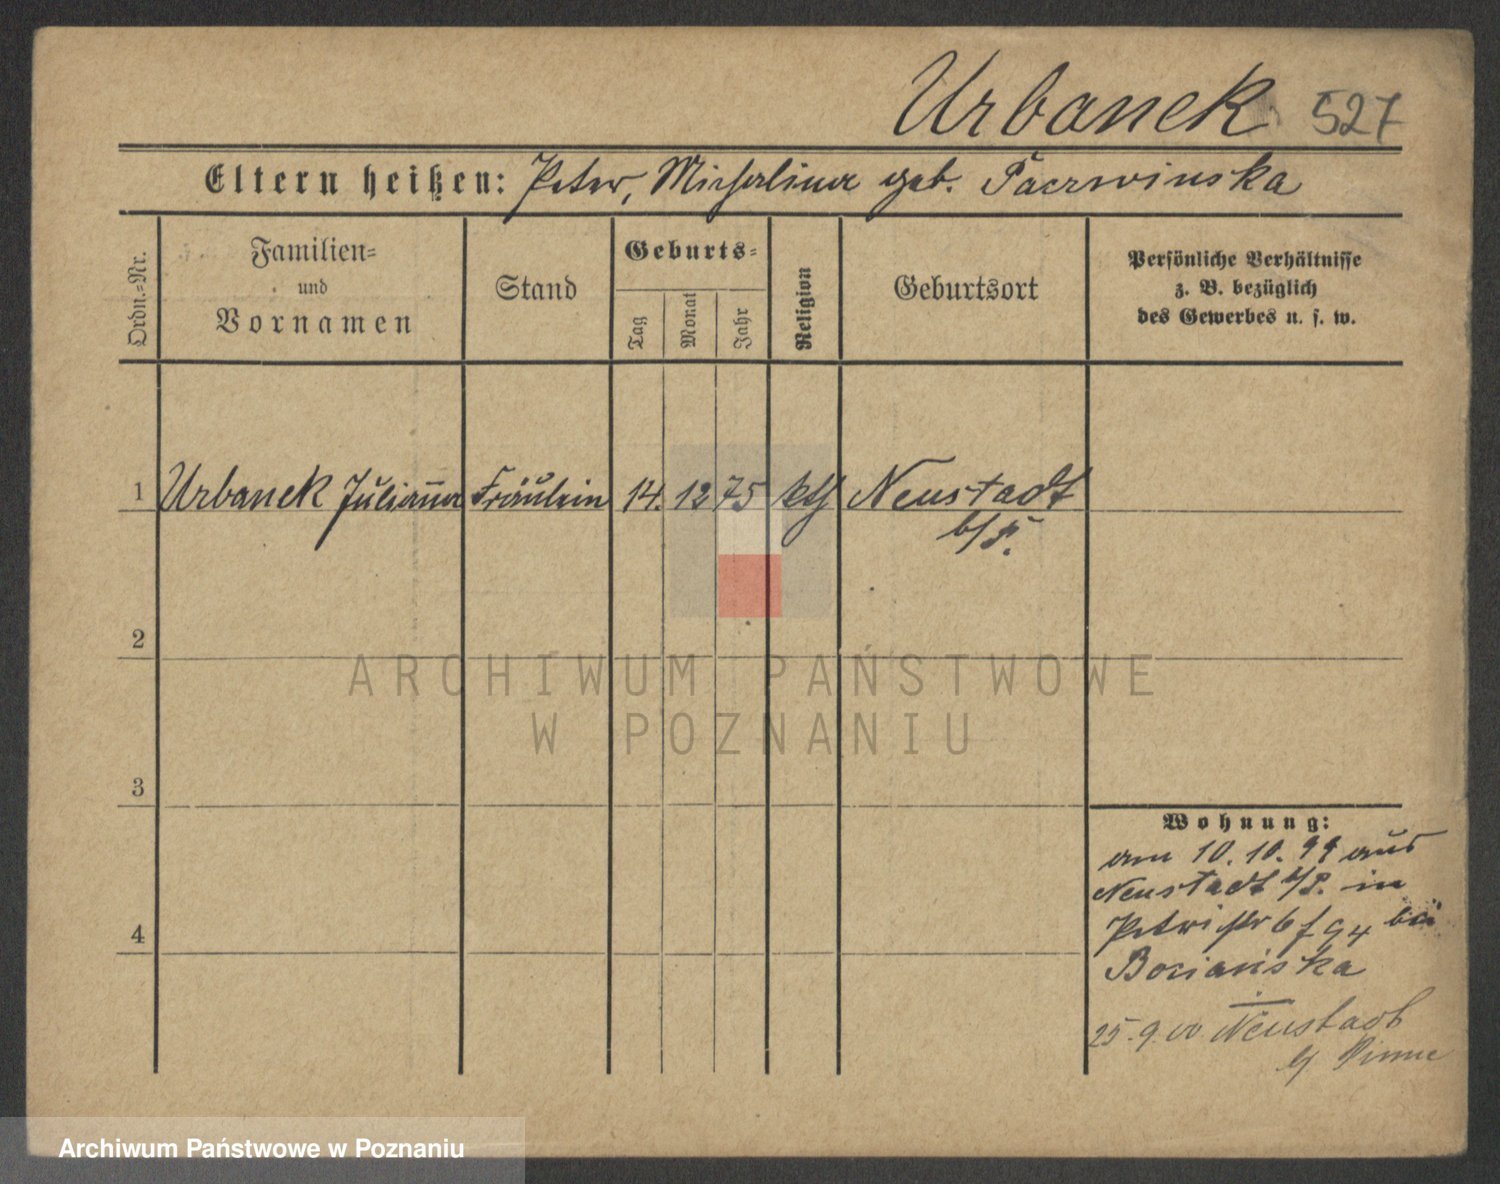 Urbanek 527
Eltern heißen: Peter, Michalina geb. Paczwinska
Ordn.=Nr.
Familien=
und
Vornamen
Stand
Geburts=
Tag
Monat
Jahr
Religion
Geburtsort
Persönliche Verhältnisse
z. B. bezüglich
des Gewerbes u. s. w.
1 Urbanek Julianna Fräulein 14. 12 75 kth Neustadt
b/P.
2
ARCHIWUM PAŃSTWOWE
W POZNANIU
3
Wohnung:
am 10. 10. 99 aus
Neustadt b/P. in
Petristr 6 f 94 bei
Bocianska
4
25.9.00 Neustadt
b/ Pinne
Archiwum Państwowe w Poznaniu